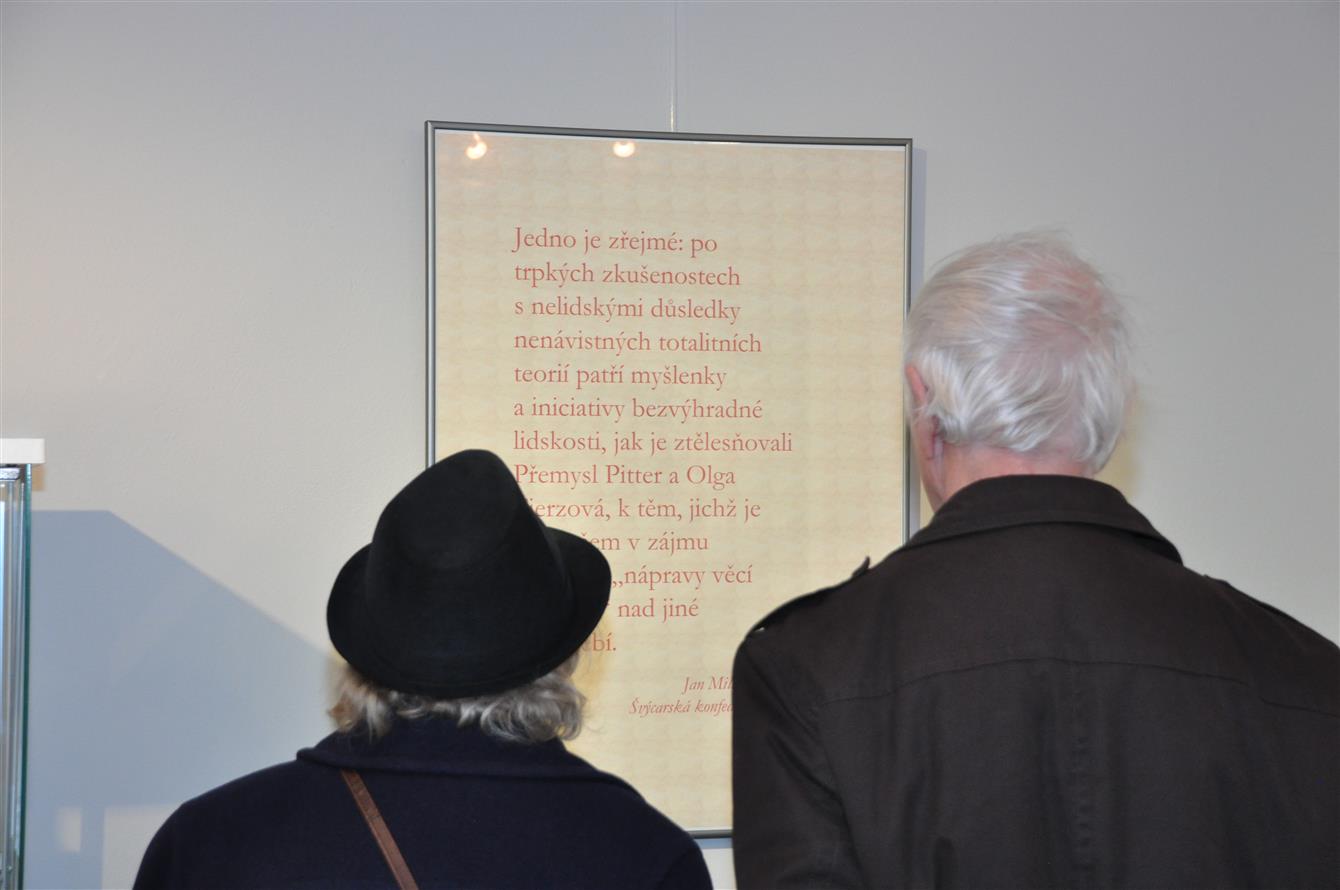 Jedno je zřejmé: po
trpkých zkušenostech
s nelidskými důsledky
nenávistných totalitních
teorií patří myšlenky
a iniciativy bezvýhradné
lidskosti, jak je ztělesňovali
Přemysl Pitter a Olga
k těm, jichž je
v zájmu
„nápravy věcí
nad jiné
Jan
Švýcarská